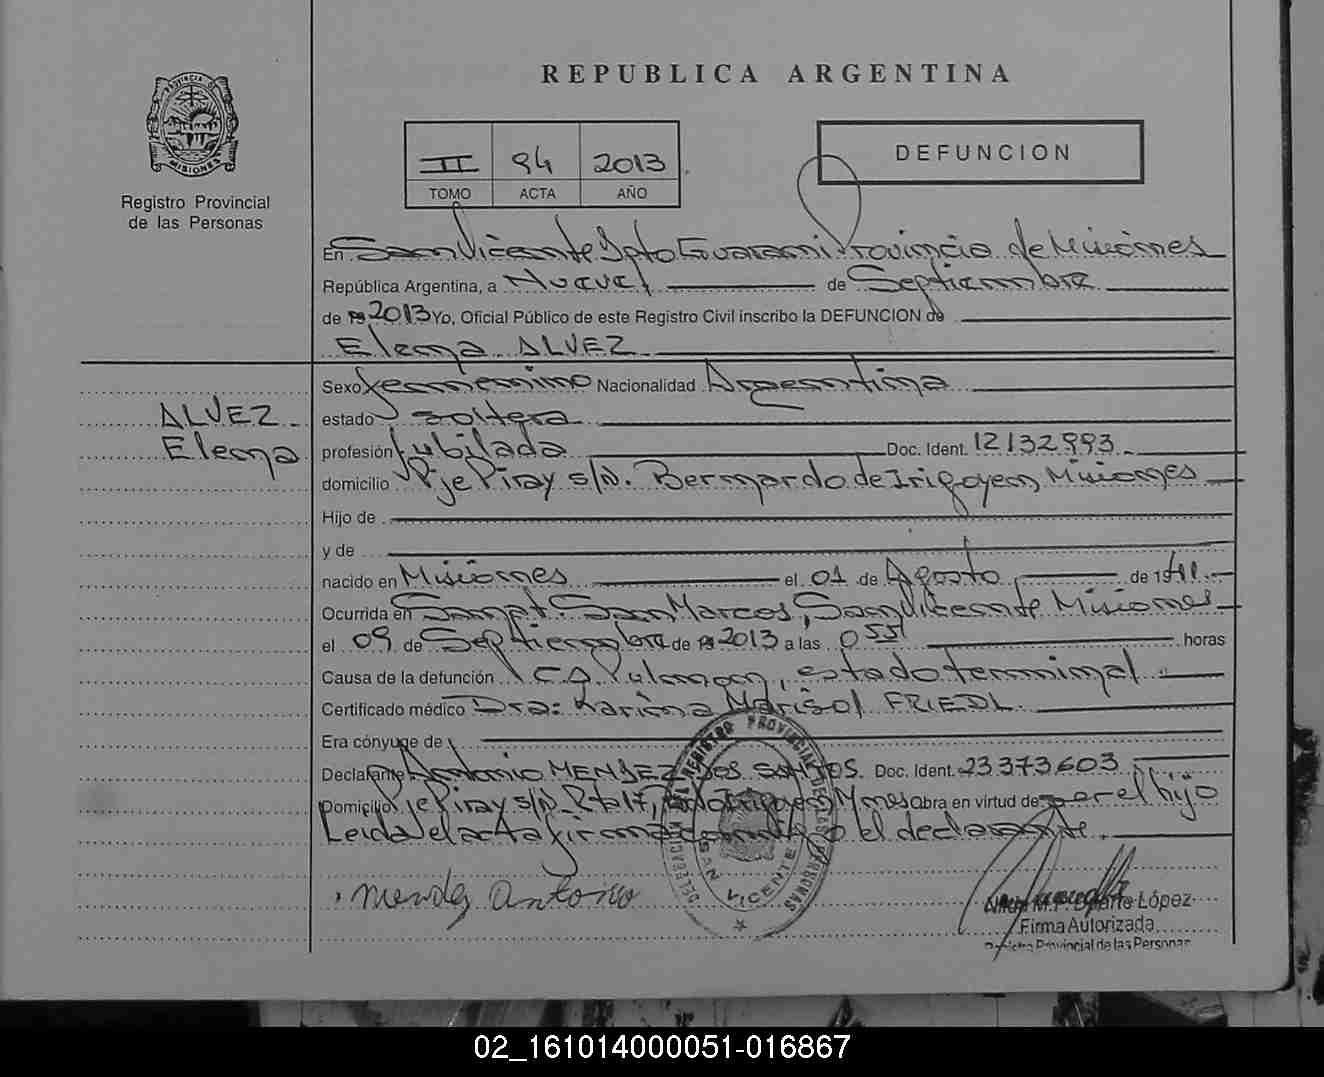 REPUBLICA ARGENTINA
PROVINCIA DE
MISIONES
Registro Provincial
de las Personas
II 94 2013
TOMO ACTA AÑO
DEFUNCION
En San Vicente Dpto Guarani Provincia de Misiones
República Argentina, a Nueve de Septiembre
de 2013 Yo, Oficial Público de este Registro Civil inscribo la DEFUNCION de
Elena ALVEZ
ALVEZ
Elena
Sexo femenino Nacionalidad Argentina
estado soltera
profesión Jubilada Doc. Ident. 12132993
domicilio Pje Piray s/N. Bernardo de Irigoyen, Misiones
Hijo de
y de
nacido en Misiones el 01 de Agosto de 1941
Ocurrida en Sanat. San Marcos, San Vicente Misiones
el 09 de Septiembre de 2013 a las 0 55 horas
Causa de la defunción CA Pulmon, estado terminal
Certificado médico Dra: Karina Marisol FRIEDL
Era cónyuge de
Declarante Antonio MENDEZ DOS SANTOS. Doc. Ident. 23373603
Domicilio Pje Piray s/N. Irigoyen Mnes Obra en virtud de ser el hijo
Leida el acta firma conmigo el declarante.
DELEGACION DEL REGISTRO PROVINCIAL DE LAS PERSONAS
SAN VICENTE
Mendez Antonio
Duarte López
Firma Autorizada
Registro Provincial de las Personas
02_161014000051-016867